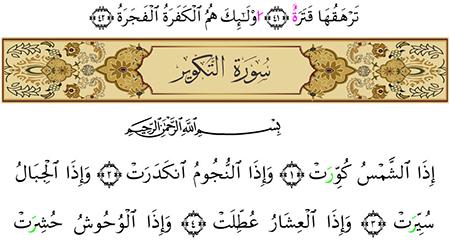 تَرْهَقُهَا قَتَرَةٌ ﴿٤١﴾ أُوْلَٰٓئِكَ هُمُ ٱلْكَفَرَةُ ٱلْفَجَرَةُ ﴿٤٢﴾
سُورَةُ التَّكْوِيرِ
بِسْمِ اللَّهِ الرَّحْمَٰنِ الرَّحِيمِ
إِذَا ٱلشَّمْسُ كُوِّرَتْ ﴿١﴾ وَإِذَا ٱلنُّجُومُ ٱنكَدَرَتْ ﴿٢﴾ وَإِذَا ٱلْجِبَالُ
سُيِّرَتْ ﴿٣﴾ وَإِذَا ٱلْعِشَارُ عُطِّلَتْ ﴿٤﴾ وَإِذَا ٱلْوُحُوشُ حُشِرَتْ